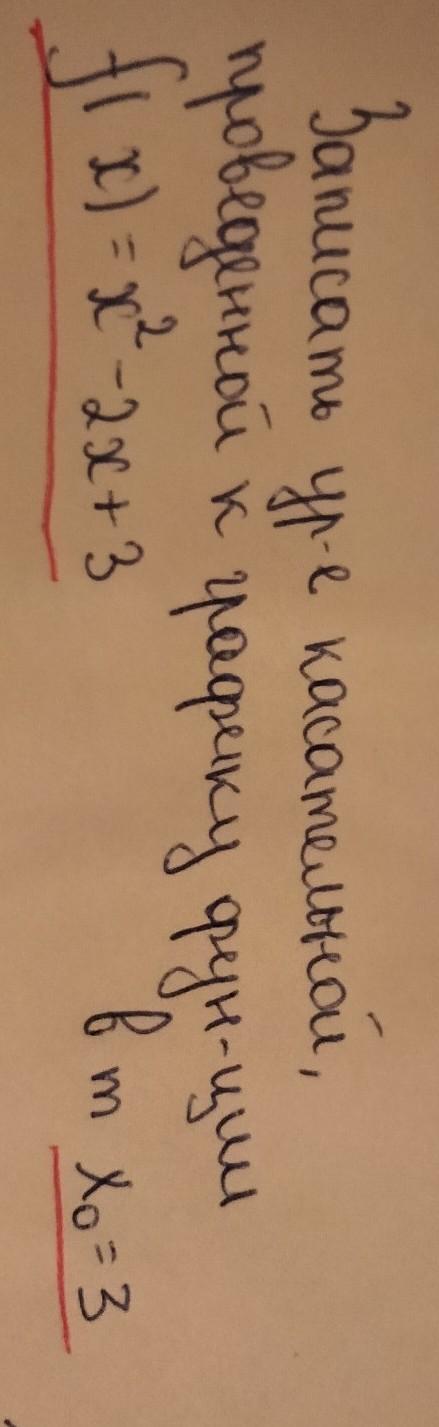 Записать ур-е касательной,
проведенной к графику фун-ции
f(x) = x² - 2x + 3 в т x₀ = 3